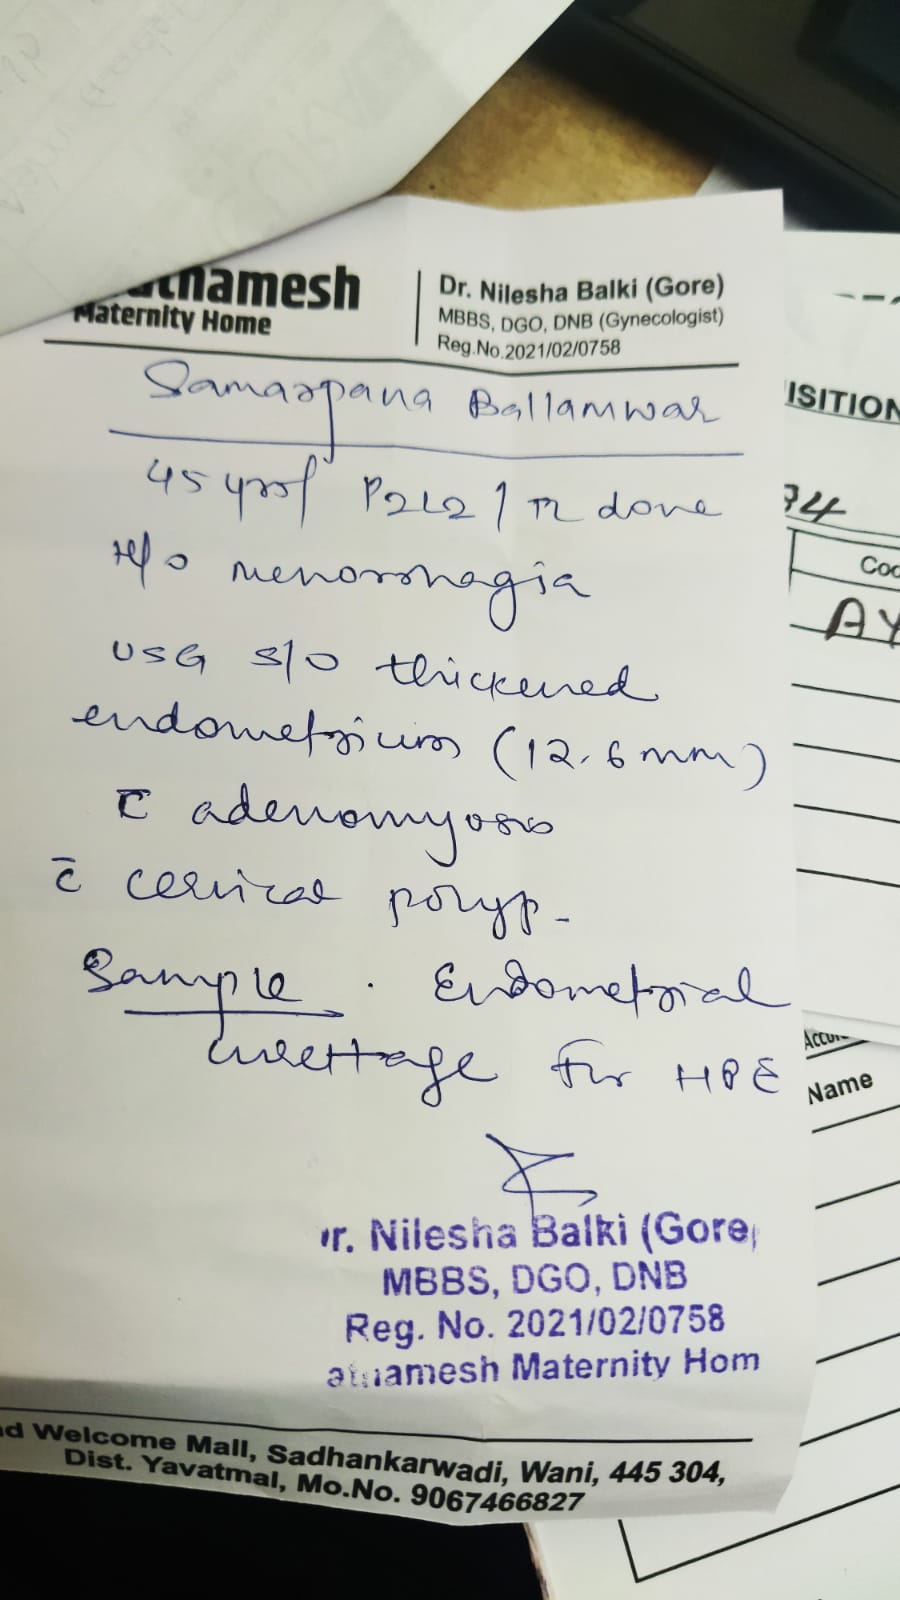 thamesh
Maternity Home
Dr. Nilesha Balki (Gore)
MBBS, DGO, DNB (Gynecologist)
Reg.No.2021/02/0758
Samarpana Ballamwar
45 yrs/ P2L2 / TL done
H/o menorrhagia
USG S/O thickened
endometrium (12.6 mm)
c̄ adenomyosis
c̄ cervical polyp -
Sample . Endometrial
curettage for HPE
r. Nilesha Balki (Gore
MBBS, DGO, DNB
Reg. No. 2021/02/0758
namesh Maternity Hom
d Welcome Mall, Sadhankarwadi, Wani, 445 304,
Dist. Yavatmal, Mo.No. 9067466827
ISITION
34
Coc
AY
Name